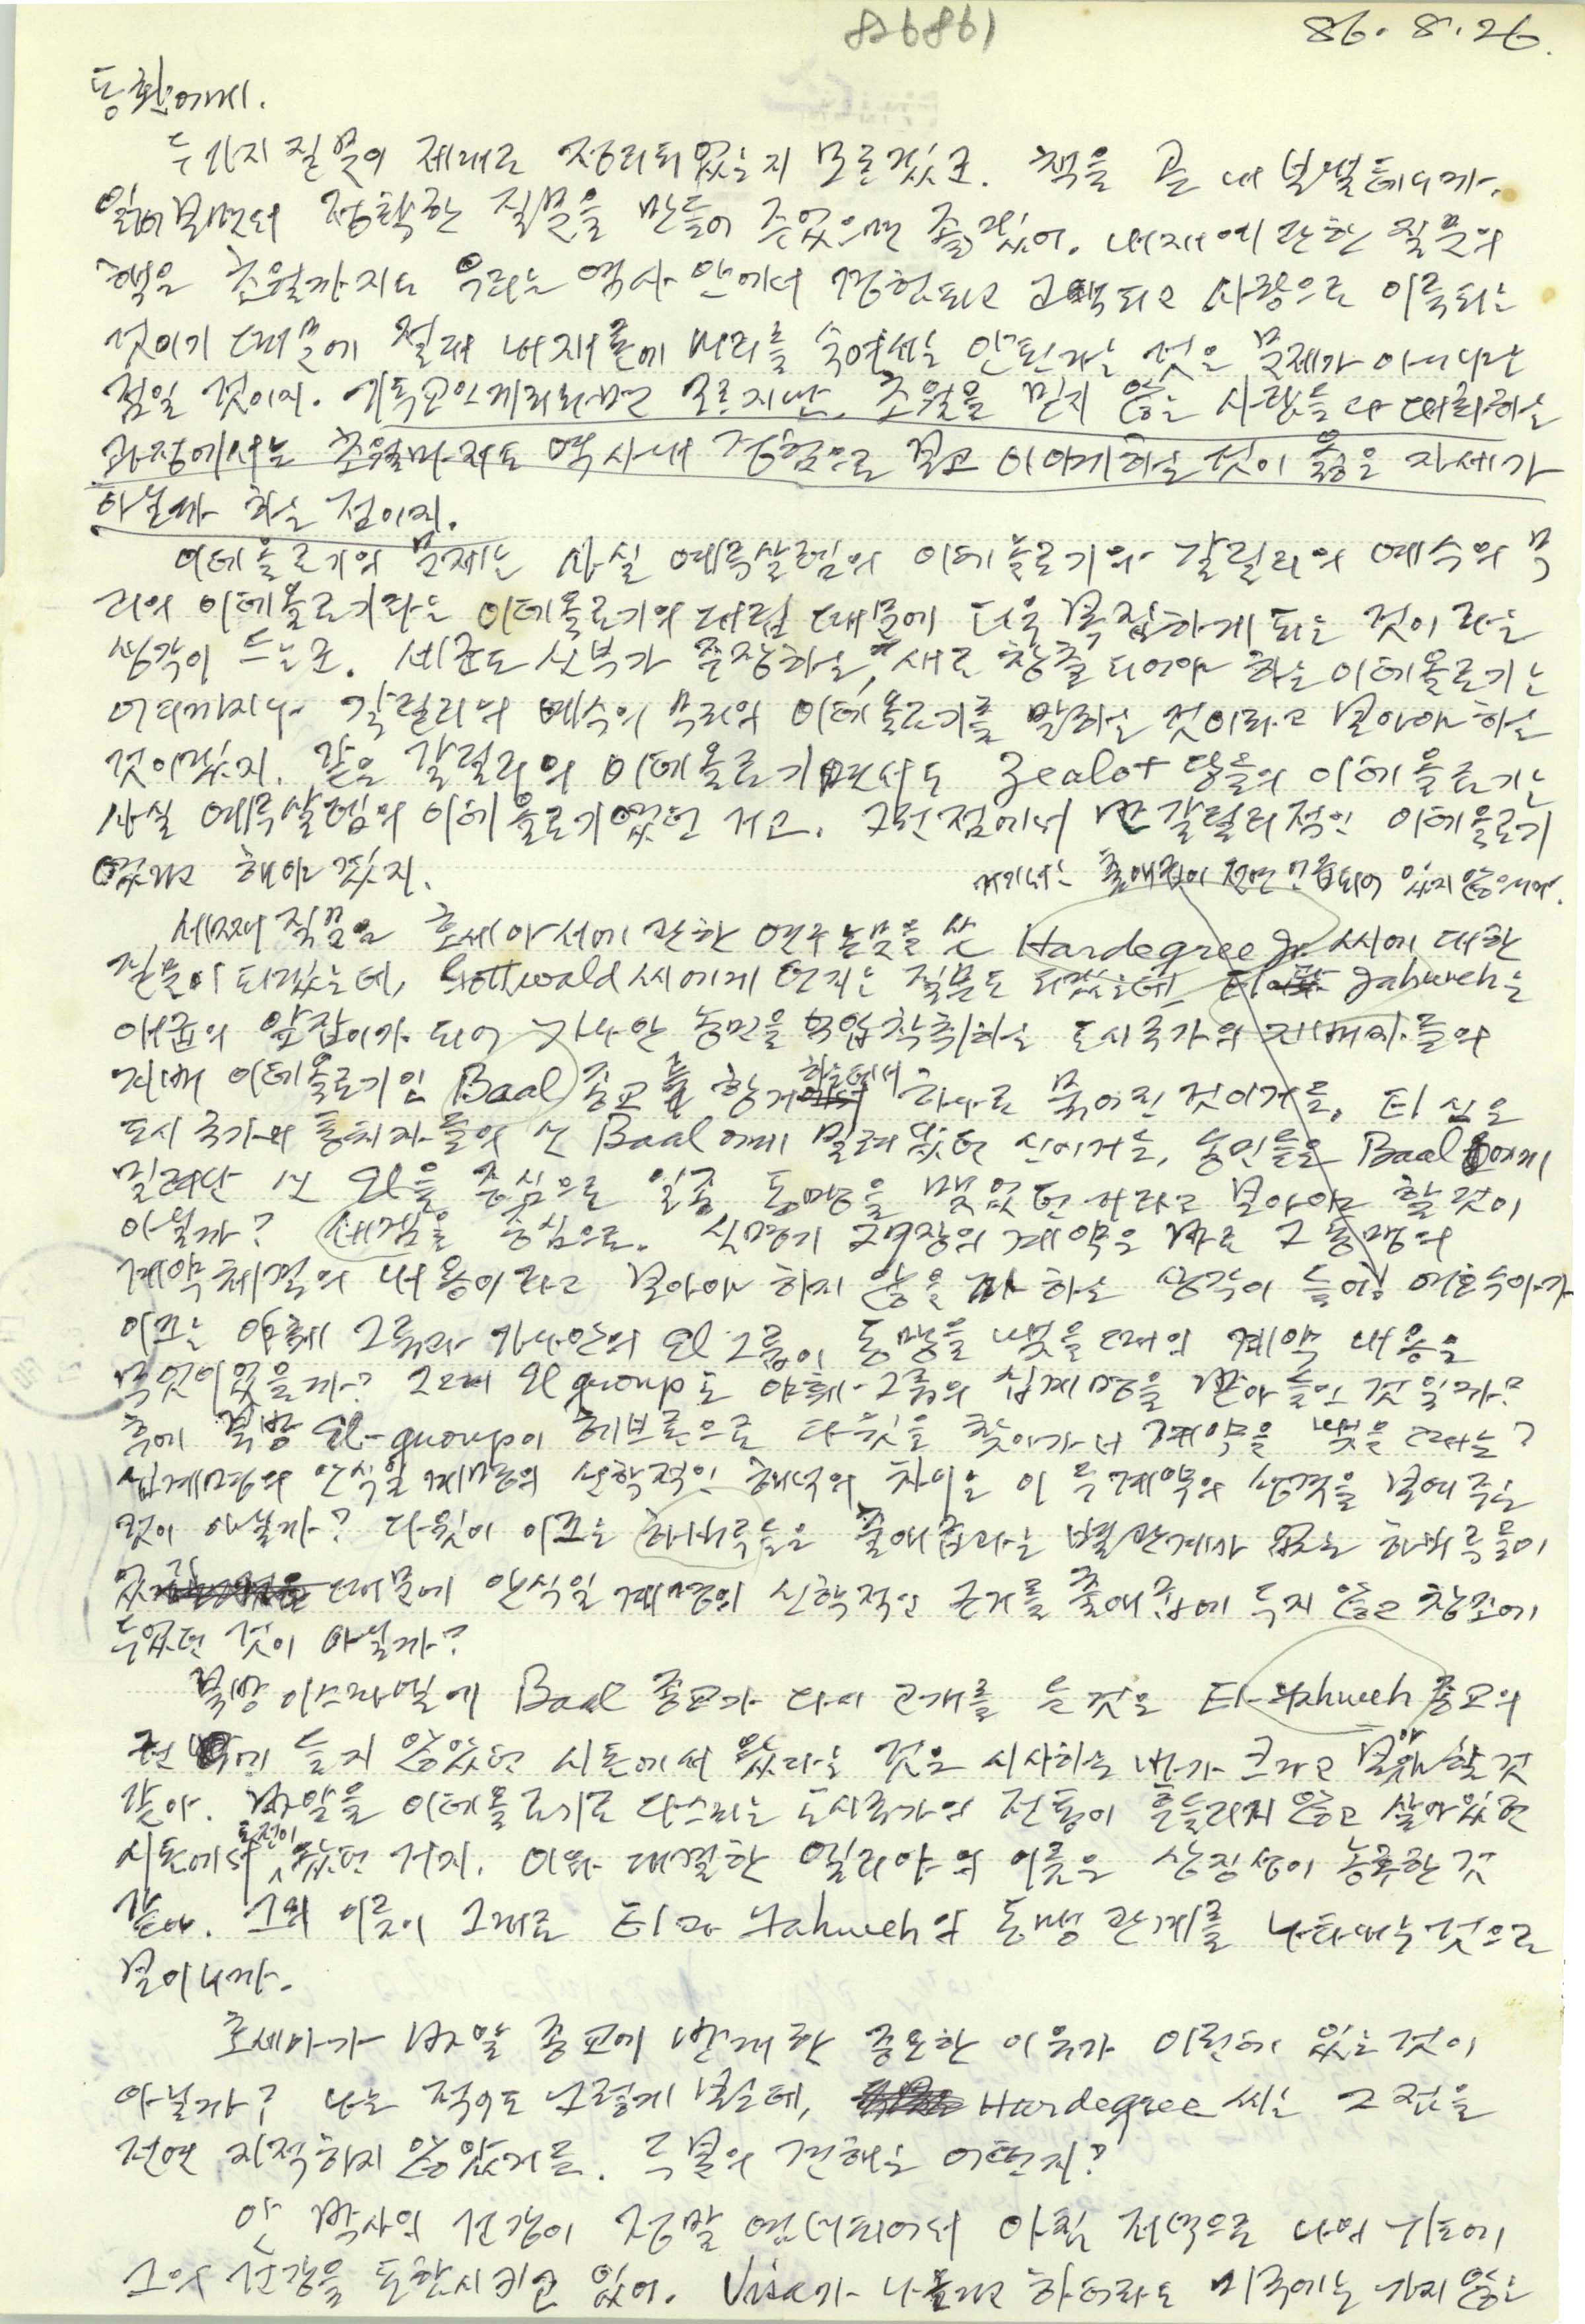 826861
86. 8. 26.
동환에게.
두가지 질문이 제대로 정리되었는지 모르겠군. 책을 곧 내보낼테니까.
읽어보면서 정확한 질문을 만들어 주었으면 좋겠어. 내재에 관한 질문의
핵은 초월까지도 우리는 역사 안에서 경험되고 고백되고 사랑으로 이룩되는
것이기 때문에 절대 내재론에 머리를 숙여서는 안된다는 것은 문제가 아니라는
점일 것이야. 기독교인끼리라면 모르지만, 초월을 믿지 않는 사람들과 대화하는
과정에서는 초월마저도 역사내 경험으로 보고 이야기하는 것이 옳은 자세가
아닐까 하는 점이지.
이데올로기의 문제는 사실 예루살렘의 이데올로기와 갈릴리의 예수의 무
리의 이데올로기라는 이데올로기의 대립 때문에 더욱 복잡하게 되는 것이라는
생각이 드는군. 세군도 신부가 주장하는, 새로 창출되어야 하는 이데올로기는
어디까지나 갈릴리의 예수의 무리의 이데올로기를 말하는 것이라고 보아야 하는
것이겠지. 같은 갈릴리의 이데올로기면서도 Zealot 당들의 이데올로기는
사실 예루살렘의 이데올로기였던 거고. 그런 점에서 반갈릴리적인 이데올로기
였다고 해야겠지.
거기서는 출애굽이 전연 언급되어 있지 않으니까.
세째 질문은 호세아서에 관한 연구논문을 쓴 Hardegree Jr. 씨에 대한
질문이 되겠는데, Gottwald 씨에게 던지는 질문도 되겠는데 El Jahweh는
애굽의 앞잡이가 되어 가나안 농민을 억압착취하는 도시국가의 지배자들의
지배 이데올로기인 Baal 종교를 항거하는데서 하나로 묶어진 것이거든. El 신은
도시국가의 통치자들의 신 Baal에게 밀려났던 신이거든, 농민들은 Baal에게
밀려난 신 El을 중심으로 일종 동맹을 맺었던 거라고 보아야 할 것이
아닐까? 세겜을 중심으로. 신명기 27장의 계약은 바로 그 동맹의
계약체결의 내용이라고 보아야 하지 않을까 하는 생각이 들어. 여호수아가
이끄는 야훼 그룹과 가나안의 El 그룹이 동맹을 맺을 때의 계약 내용은
무엇이었을까? 그때 El group도 야훼-그룹의 십계명을 받아들인 것일까?
후에 북방 El-group이 헤브론으로 다윗을 찾아가서 계약을 맺을 때는?
십계명의 안식일 계명의 신학적인 해석의 차이는 이 두 계약의 성격을 보여주는
것이 아닐까? 다윗이 이끄는 하비루들은 출애굽과는 별 관계가 없는 하비루들이
었기 때문에 안식일 계명의 신학적인 근거를 출애굽에 두지 않고 창조에
두었던 것이 아닐까?
북방 이스라엘에 Baal 종교가 다시 고개를 든 것은 El-Yahweh 종교의
권에 들지 않았던 시돈에서 왔다는 것은 시사하는 바가 크다고 보아야 할 것
같아. 바알을 이데올로기로 다스리는 도시국가의 전통이 흔들리지 않고 살아있던
시돈에서 도전이 왔던 거지. 이와 대결한 엘리야의 이름은 상징성이 농후한 것
같아. 그의 이름이 그대로 El과 Yahweh의 동맹 관계를 나타내는 것으로
보이니까.
호세아가 바알 종교에 반대한 중요한 이유가 이런데 있는 것이
아닐까? 나는 적어도 그렇게 보는데, Hardegree 씨는 그 점을
전연 지적하지 않았거든. 특별의 견해는 어떤지?
안 박사의 건강이 정말 염려되어서 아침 저녁으로 나의 기도에
그의 건강을 포함시키고 있어. Visa가 나온다고 하더라도 미국에는 가지 않는